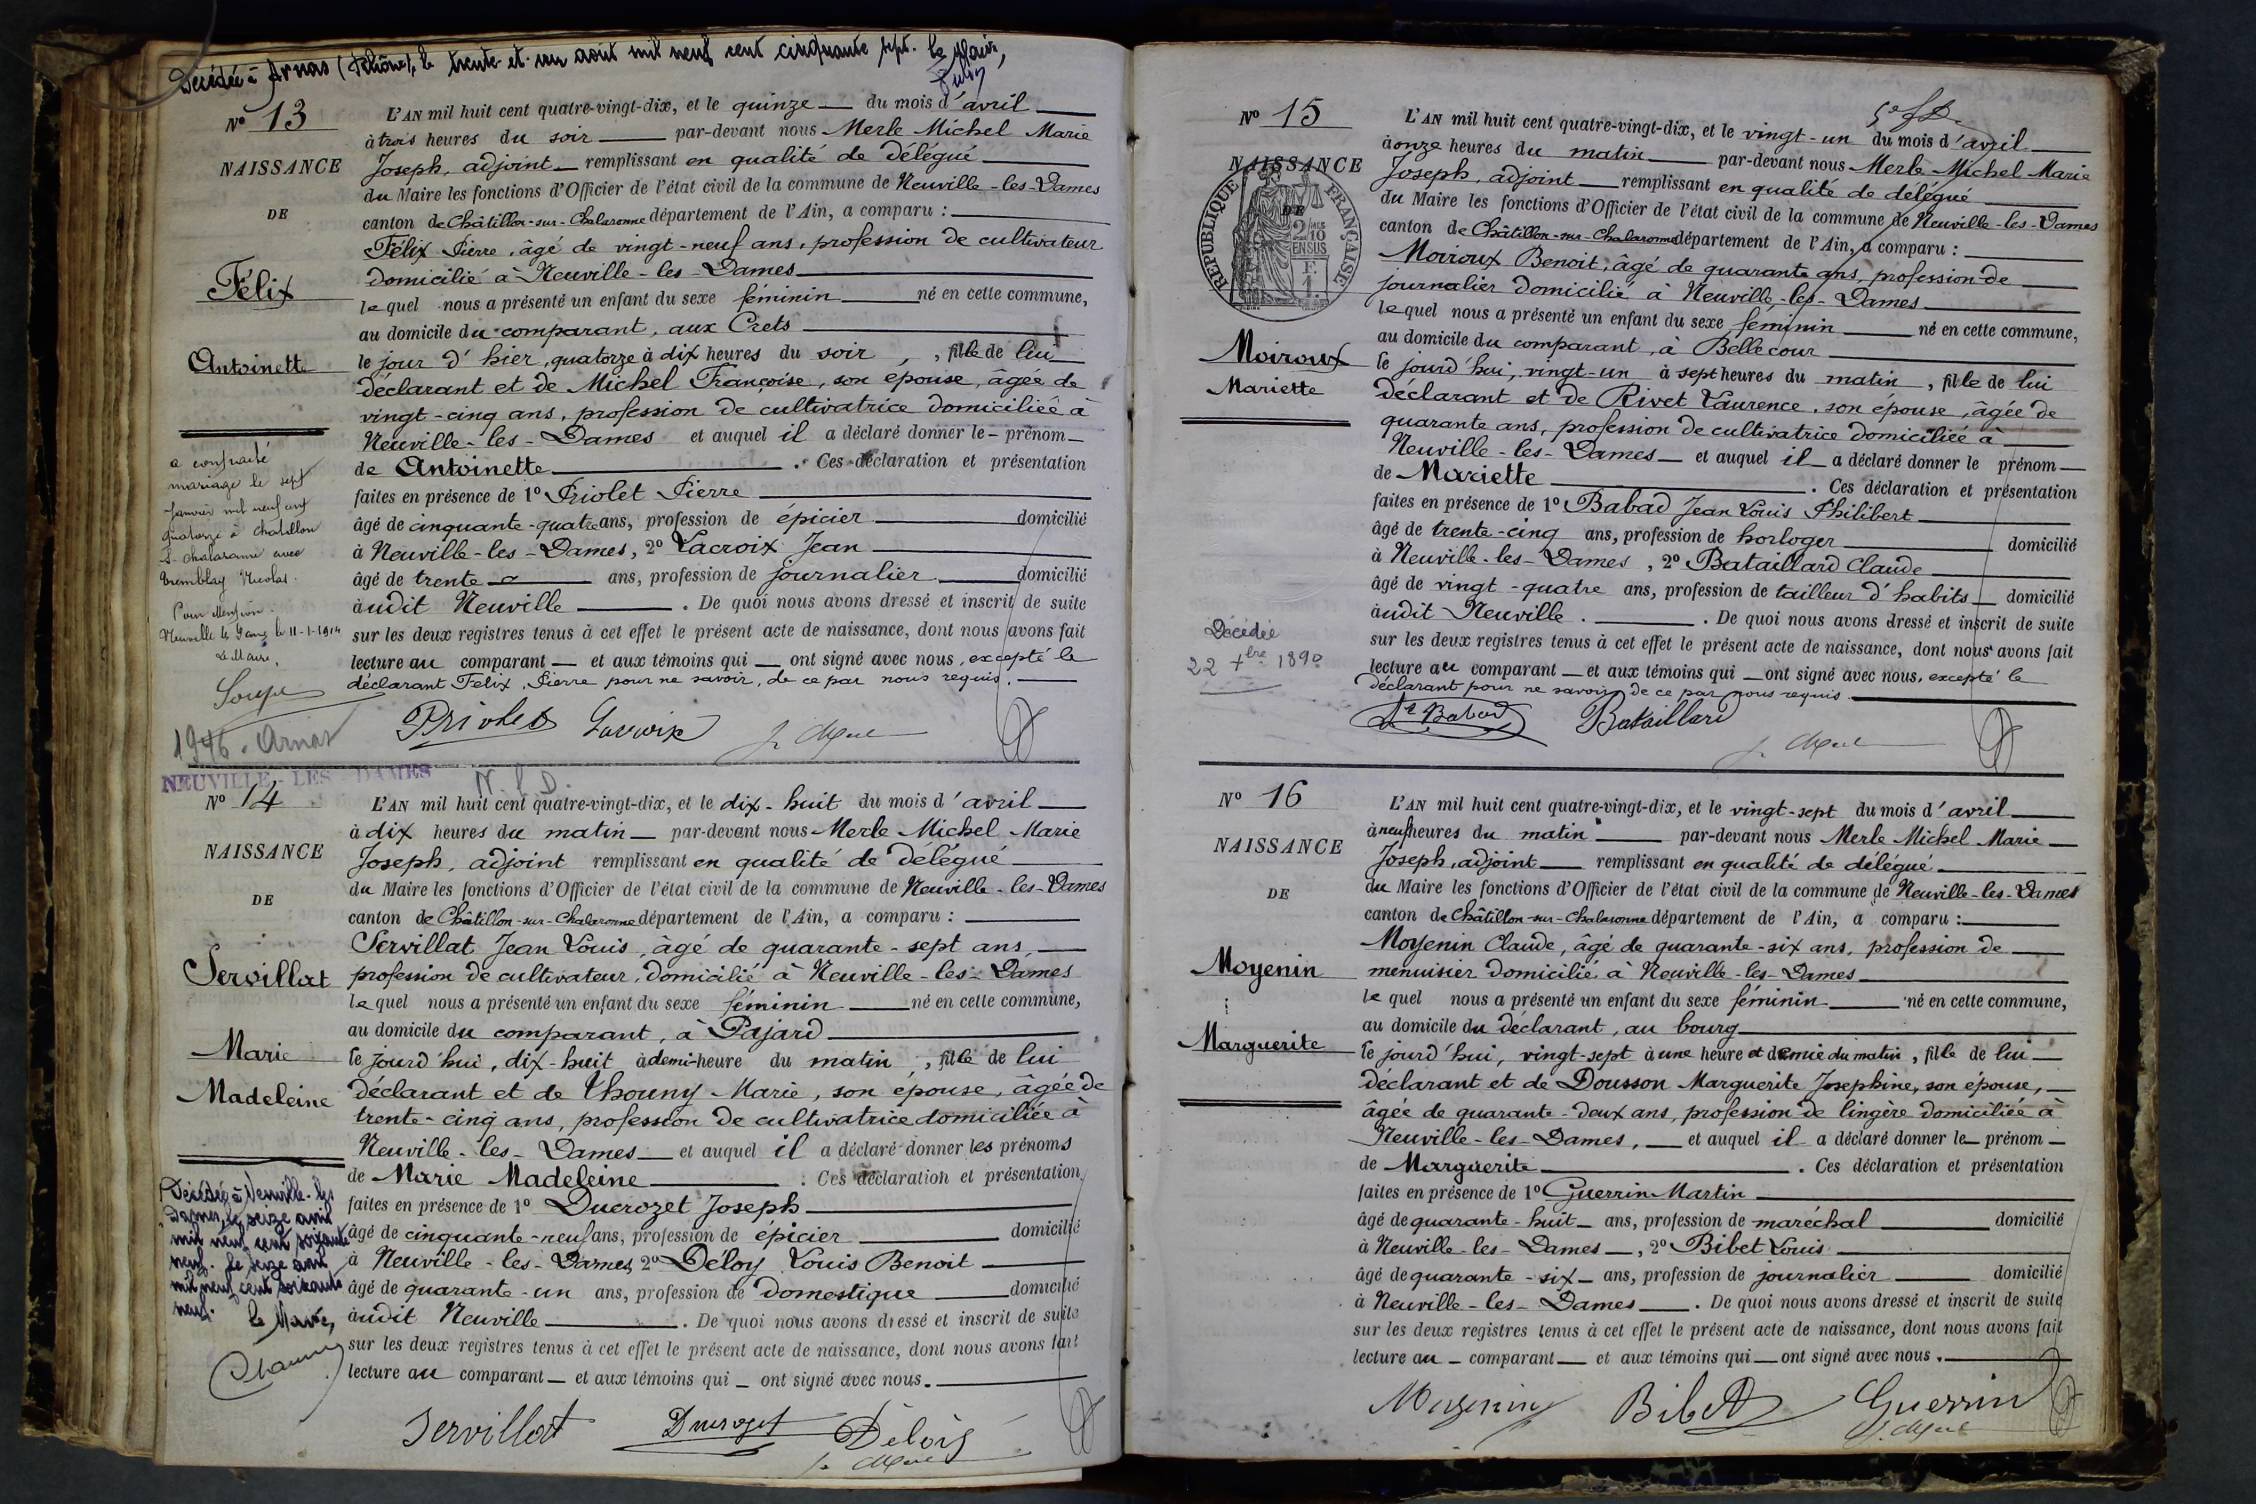 Décédée à Arnas (Rhône), le trente et un août mil neuf cent cinquante sept. Le Maire,
N° 13
NAISSANCE
DE
Félix
Antoinette
a contracté
mariage le sept
janvier mil neuf cent
quatorze à Chatillon
s. chalaronne avec
Tremblay Nicolas.
Pour Mention.
Neuville les Dames le 11-1-1914
Le Maire,
1946. Arnas
L'AN mil huit cent quatre-vingt-dix, et le quinze du mois d'avril
à trois heures du soir par-devant nous Merle Michel Marie
Joseph, adjoint remplissant en qualité de délégué
du Maire les fonctions d'Officier de l'état civil de la commune de Neuville-les-Dames
canton de Châtillon-sur-Chalaronne département de l'Ain, a comparu :
Félix Pierre, âgé de vingt-neuf ans, profession de cultivateur
domicilié à Neuville-les-Dames
lequel nous a présenté un enfant du sexe féminin né en cette commune,
au domicile du comparant, aux Crets
le jour d'hier, quatorze à dix heures du soir, fille de lui
déclarant et de Michel Françoise, son épouse, âgée de
vingt-cinq ans, profession de cultivatrice domiciliée à
Neuville-les-Dames et auquel il a déclaré donner le prénom
de Antoinette. Ces déclaration et présentation
faites en présence de 1° Priolet Pierre
âgé de cinquante-quatre ans, profession de épicier domicilié
à Neuville-les-Dames, 2° Lacroix Jean
âgé de trente ans, profession de journalier domicilié
audit Neuville. De quoi nous avons dressé et inscrit de suite
sur les deux registres tenus à cet effet le présent acte de naissance, dont nous avons fait
lecture au comparant et aux témoins qui ont signé avec nous, excepté le
déclarant Felix Pierre pour ne savoir, de ce par nous requis.
Priolet Lacroix J. Merle
NEUVILLE-LES-DAMES
N. l. D.
N° 14
NAISSANCE
DE
Servillat
Marie
Madeleine
Décédée à Neuville-les
Dames, le seize avril
mil neuf cent soixante
neuf. Le seize avril
mil neuf cent soixante
neuf.
Le Maire,
L'AN mil huit cent quatre-vingt-dix, et le dix-huit du mois d'avril
à dix heures du matin par-devant nous Merle Michel Marie
Joseph, adjoint remplissant en qualité de délégué
du Maire les fonctions d'Officier de l'état civil de la commune de Neuville-les-Dames
canton de Châtillon-sur-Chalaronne département de l'Ain, a comparu :
Servillat Jean Louis, âgé de quarante-sept ans,
profession de cultivateur, domicilié à Neuville-les-Dames
lequel nous a présenté un enfant du sexe féminin né en cette commune,
au domicile du comparant, à Pajard
le jourd'hui, dix-huit à demi-heure du matin, fille de lui
déclarant et de Thouny Marie, son épouse, âgée de
trente-cinq ans, profession de cultivatrice domiciliée à
Neuville-les-Dames et auquel il a déclaré donner les prénoms
de Marie Madeleine. Ces déclaration et présentation
faites en présence de 1° Ducrozet Joseph
âgé de cinquante-neuf ans, profession de épicier domicilié
à Neuville-les-Dames, 2° Déloy Louis Benoit
âgé de quarante-un ans, profession de domestique domicilié
audit Neuville. De quoi nous avons dressé et inscrit de suite
sur les deux registres tenus à cet effet le présent acte de naissance, dont nous avons fait
lecture au comparant et aux témoins qui ont signé avec nous.
Servillat Ducrozet Délois
J. Merle
N° 15
NAISSANCE
DE
RÉPUBLIQUE FRANÇAISE
2/10 EN SUS
Moiroux
Mariette
Décédée
22 xbre 1890
L'AN mil huit cent quatre-vingt-dix, et le vingt-un du mois d'avril
à onze heures du matin par-devant nous Merle Michel Marie
Joseph, adjoint remplissant en qualité de délégué
du Maire les fonctions d'Officier de l'état civil de la commune de Neuville-les-Dames
canton de Châtillon-sur-Chalaronne département de l'Ain, a comparu :
Moiroux Benoit, âgé de quarante ans, profession de
journalier domicilié à Neuville-les-Dames
lequel nous a présenté un enfant du sexe féminin né en cette commune,
au domicile du comparant, à Bellecour
le jourd'hui, vingt-un à sept heures du matin, fille de lui
déclarant et de Rivet Laurence, son épouse, âgée de
quarante ans, profession de cultivatrice domiciliée à
Neuville-les-Dames et auquel il a déclaré donner le prénom
de Mariette. Ces déclaration et présentation
faites en présence de 1° Babad Jean Louis Philibert
âgé de trente-cinq ans, profession de horloger domicilié
à Neuville-les-Dames, 2° Bataillard Claude
âgé de vingt-quatre ans, profession de tailleur d'habits domicilié
audit Neuville. De quoi nous avons dressé et inscrit de suite
sur les deux registres tenus à cet effet le présent acte de naissance, dont nous avons fait
lecture au comparant et aux témoins qui ont signé avec nous, excepté le
déclarant pour ne savoir de ce par nous requis.
Babad Bataillard
J. Merle
N° 16
NAISSANCE
DE
Moyenin
Marguerite
L'AN mil huit cent quatre-vingt-dix, et le vingt-sept du mois d'avril
à neuf heures du matin par-devant nous Merle Michel Marie
Joseph, adjoint remplissant en qualité de délégué
du Maire les fonctions d'Officier de l'état civil de la commune de Neuville-les-Dames
canton de Châtillon-sur-Chalaronne département de l'Ain, a comparu :
Moyenin Claude, âgé de quarante-six ans, profession de
menuisier domicilié à Neuville-les-Dames
lequel nous a présenté un enfant du sexe féminin né en cette commune,
au domicile du déclarant, au bourg
le jourd'hui, vingt-sept à une heure et demie du matin, fille de lui
déclarant et de Dousson Marguerite Josephine, son épouse,
âgée de quarante-deux ans, profession de lingère domiciliée à
Neuville-les-Dames, et auquel il a déclaré donner le prénom
de Marguerite. Ces déclaration et présentation
faites en présence de 1° Guerrin Martin
âgé de quarante-huit ans, profession de maréchal domicilié
à Neuville-les-Dames, 2° Bibet Louis
âgé de quarante-six ans, profession de journalier domicilié
à Neuville-les-Dames. De quoi nous avons dressé et inscrit de suite
sur les deux registres tenus à cet effet le présent acte de naissance, dont nous avons fait
lecture au comparant et aux témoins qui ont signé avec nous.
Moyenin Bibet Guerrin
J. Merle